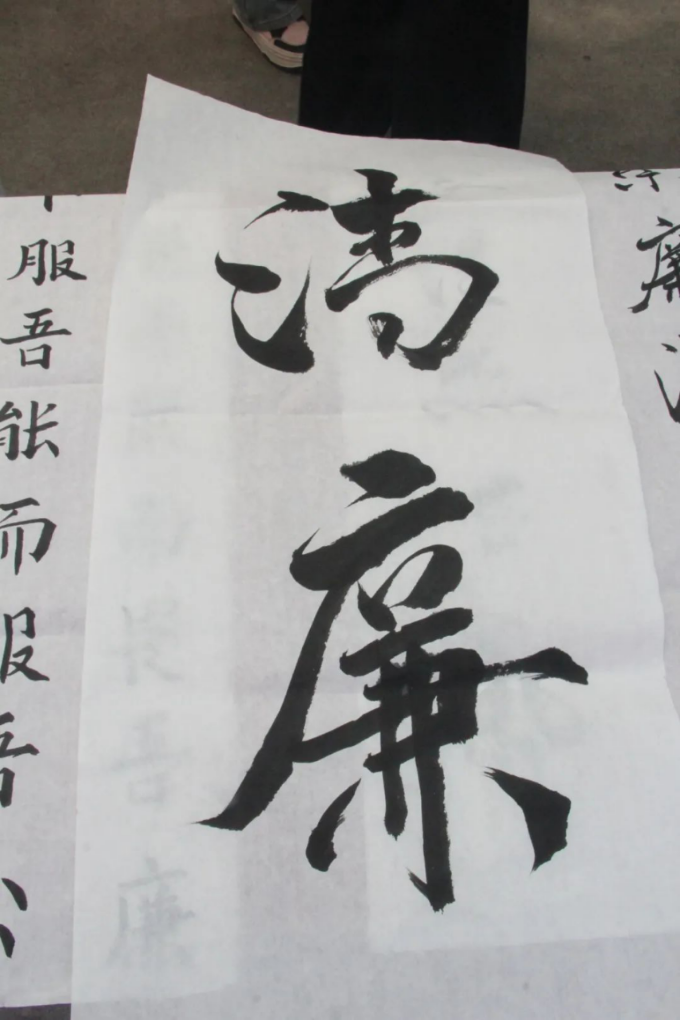 清
廉
服吾能而服吾公
廉